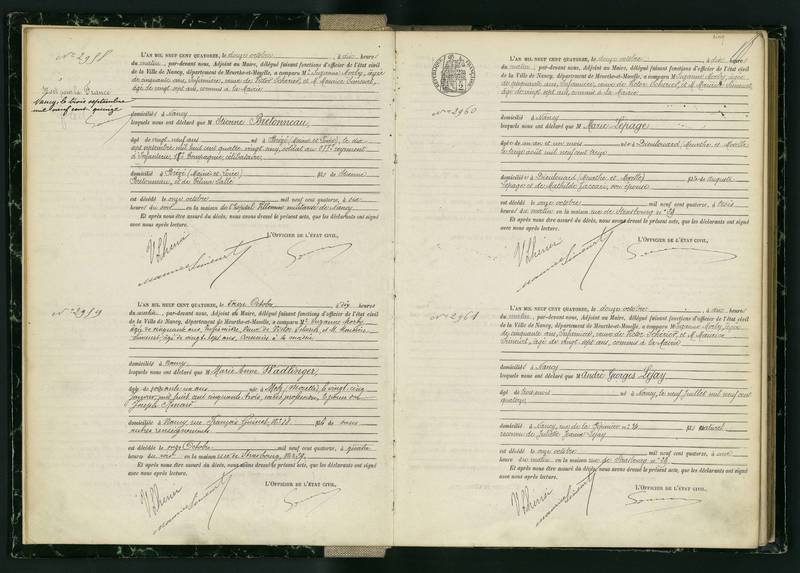 N° 2958
Mort pour la France
Nancy, le trois septembre
mil neuf cent quinze
L'AN MIL NEUF CENT QUATORZE, le douze octobre, à dix heure
du matin, par-devant nous, Adjoint au Maire, délégué faisant fonctions d'officier de l'état civil
de la Ville de Nancy, département de Meurthe-et-Moselle, a comparu M Suzanne Morby, âgée
de cinquante ans, Infirmière, veuve de Victor et M Maurice Simonet,
âgé de vingt sept ans, commis à la Mairie
domiciliés à Nancy
lesquels nous ont déclaré que M Etienne Bretonneau
âgé de vingt neuf ans né à Brézé (Maine et Loire), le dix
sept septembre mil huit cent quatre vingt cinq, soldat au régiment
d'Infanterie, Compagnie, célibataire
domicilié à Brézé (Maine et Loire) fils de Etienne
Bretonneau, et de Céline Salle
est décédé le onze octobre mil neuf cent quatorze, à six
heures du soir en la maison de l'hôpital Villemin militaire de Nancy
Et après nous être assuré du décès, nous avons dressé le présent acte, que les déclarants ont signé
avec nous après lecture.
L'OFFICIER DE L'ÉTAT CIVIL,
N° 2959
L'AN MIL NEUF CENT QUATORZE, le douze Octobre, à dix heures
du matin, par-devant nous, Adjoint au Maire, délégué faisant fonctions d'officier de l'état civil
de la Ville de Nancy, département de Meurthe-et-Moselle, a comparu M Suzanne Morby
âgée de cinquante ans, Infirmière, veuve de Victor et M Maurice
Simonet, âgé de vingt sept ans, commis à la mairie
domiciliés à Nancy
lesquels nous ont déclaré que M Marie Anne Wadlinger
âgée de soixante un ans née à Metz (Moselle) le vingt cinq
janvier mil huit cent cinquante trois, sans profession, épouse de
Joseph
domiciliée à Nancy rue François fille de sans
autres renseignements
est décédée le onze Octobre mil neuf cent quatorze, à quatre
heures du soir en la maison rue de Strasbourg, N° 29
Et après nous être assuré du décès, nous avons dressé le présent acte, que les déclarants ont signé
avec nous après lecture.
L'OFFICIER DE L'ÉTAT CIVIL,
N° 2960
L'AN MIL NEUF CENT QUATORZE, le douze octobre, à dix heure
du matin, par-devant nous, Adjoint au Maire, délégué faisant fonctions d'officier de l'état civil
de la Ville de Nancy, département de Meurthe-et-Moselle, a comparu M Suzanne Morby, âgée
de cinquante ans, Infirmière, veuve de Victor et M Maurice Simonet,
âgé de vingt sept ans, commis à la Mairie
domiciliés à Nancy
lesquels nous ont déclaré que M Marie Lepage
âgée de un an et un mois née à Dieulouard (Meurthe et Moselle)
le treize août mil neuf cent treize
domiciliée à Dieulouard (Meurthe et Moselle) fille de Auguste
Lepage et de Mathilde Jaccau, son épouse
est décédée le onze octobre mil neuf cent quatorze, à trois
heures du matin en la maison rue de Strasbourg n° 29
Et après nous être assuré du décès, nous avons dressé le présent acte, que les déclarants ont signé
avec nous après lecture.
L'OFFICIER DE L'ÉTAT CIVIL,
N° 2961
L'AN MIL NEUF CENT QUATORZE, le douze octobre, à dix heure
du matin, par-devant nous, Adjoint au Maire, délégué faisant fonctions d'officier de l'état civil
de la Ville de Nancy, département de Meurthe-et-Moselle, a comparu M Suzanne Morby, âgée
de cinquante ans, Infirmière, veuve de Victor et M Maurice
Simonet, âgé de vingt sept ans, commis à la Mairie
domiciliés à Nancy
lesquels nous ont déclaré que M André Georges Lejay
âgé de trois mois né à Nancy, le neuf juillet mil neuf cent
quatorze
domicilié à Nancy, rue de la Pépinière n° fils naturel
reconnu de Juliette Lejay
est décédé le onze octobre mil neuf cent quatorze, à une
heure du matin en la maison rue de Strasbourg n° 29
Et après nous être assuré du décès, nous avons dressé le présent acte, que les déclarants ont signé
avec nous après lecture.
L'OFFICIER DE L'ÉTAT CIVIL,